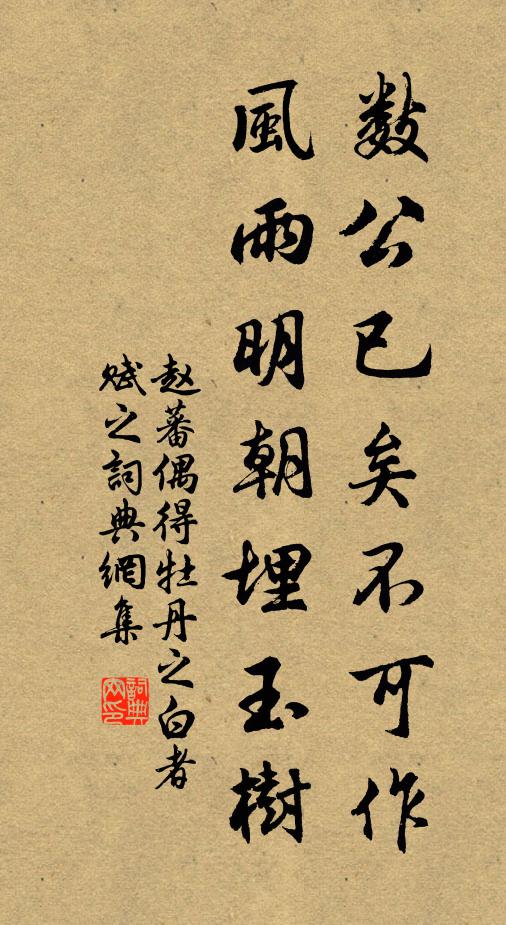 數公已矣不可作
風雨明朝埋玉樹
赵蕃偶得牡丹之白者
賦之詞典網集
詞典
网印